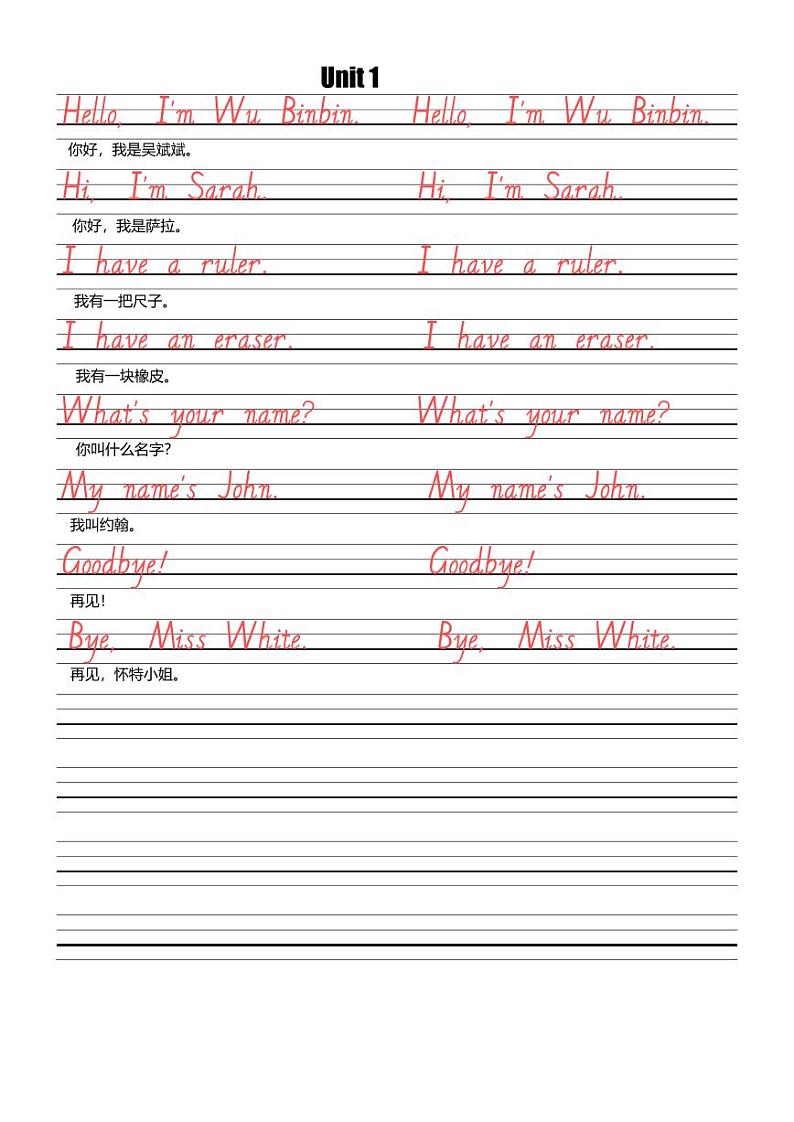 Unit 1
Hello, I'm Wu Binbin. Hello, I'm Wu Binbin.
你好，我是吴斌斌。
Hi, I'm Sarah. Hi, I'm Sarah.
你好，我是萨拉。
I have a ruler. I have a ruler.
我有一把尺子。
I have an eraser. I have an eraser.
我有一块橡皮。
What's your name? What's your name?
你叫什么名字？
My name's John. My name's John.
我叫约翰。
Goodbye! Goodbye!
再见！
Bye, Miss White. Bye, Miss White.
再见，怀特小姐。